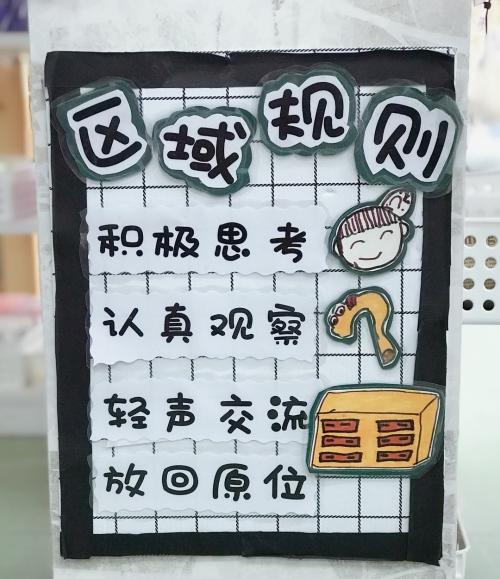 区域规则
积极思考
认真观察
轻声交流
放回原位